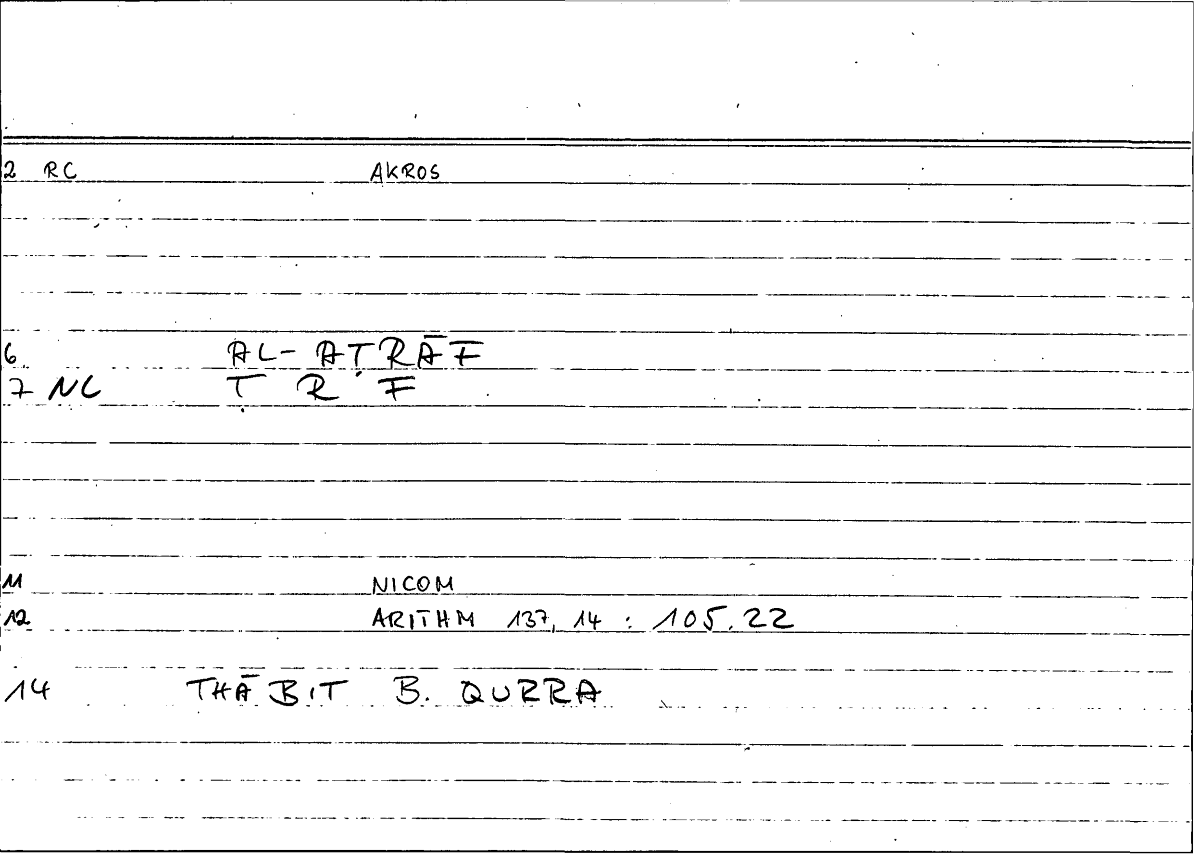 2 RC AKROS
6 AL-AṬRĀF
7 NC Ṭ R F
11 NICOM
12 ARITHM 137, 14 : 105.22
14 THĀBIT B. QURRA